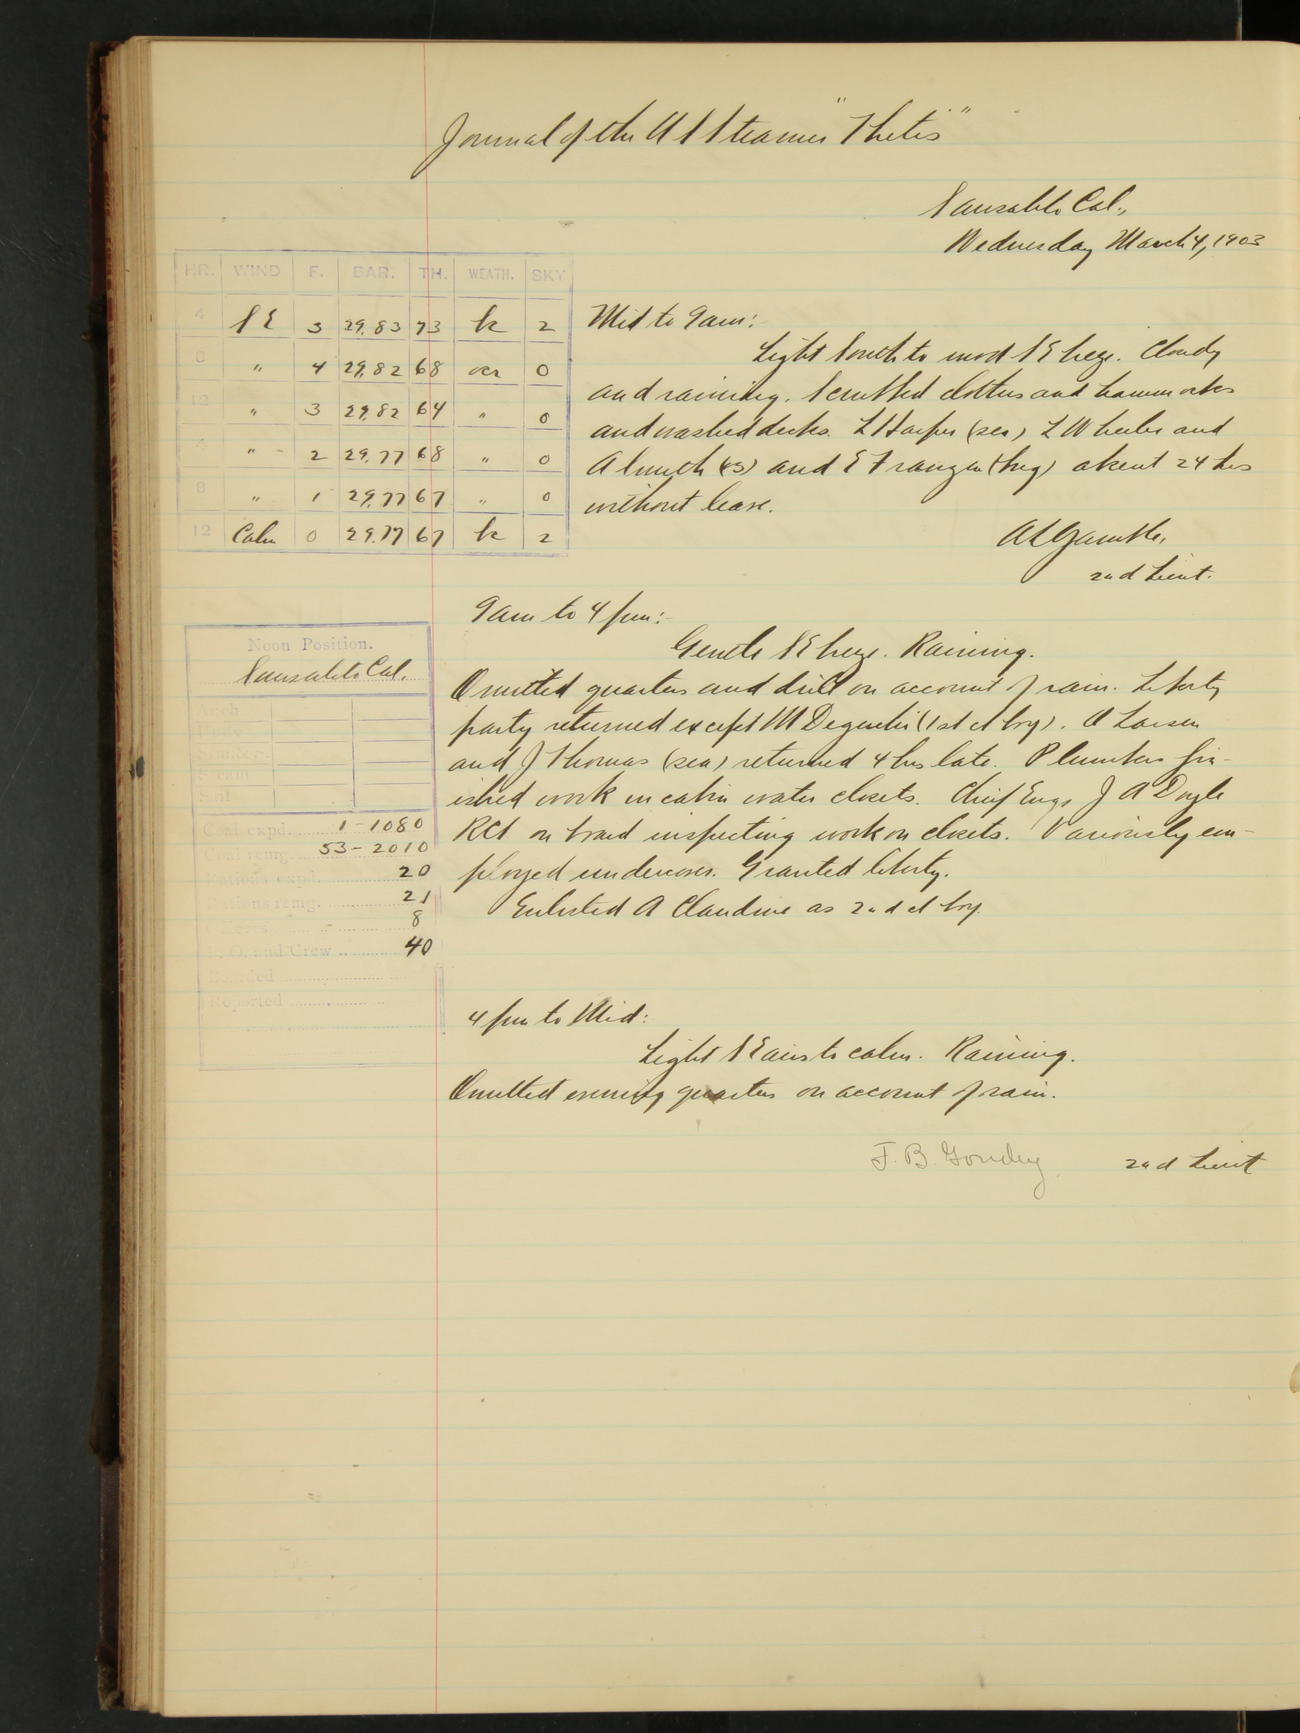 Journal of the U S Steamer "Thetis"
Sausalito Cal.,
Wednesday March 4, 1903
HR. WIND F. BAR. TH. WEATH. SKY
4 SE 3 29.83 73 bc 2
8 " 4 29.82 68 ocr 0
12 " 3 29.82 64 " 0
4 " 2 29.77 68 " 0
8 " 1 29.77 67 " 0
12 Calm 0 29.77 67 bc 2
Mid to 9am:
Light South to mod SE breze. Cloudy
and raining. Scrubbed clothes and hammocks
and washed decks. L Harper (sea) L Wheeler and
A (CS) and E Franzen (bug) absent 24 hrs
without leave.
A L Gamble,
2nd Lieut.
9am to 4pm:
Gentle SE breze. Raining.
Omitted quarters and drill on account of rain. Liberty
party returned except M (1st cl boy). O Larsen
and J Thomas (sea) returned 4 hrs late. Plumbers fin-
ished work in cabin water closets. Chief Engr J A Doyle
RCS on board inspecting work on closets. Variously em-
ployed undercover. Granted liberty.
Enlisted A Claudine as 2nd cl boy.
Noon Position.
Sausalito Cal.
Coal expd. 1-1080
remg. 53-2010
Rations expd. 20
Rations remg. 21
8
O. and Crew 40
Boarded
Reported
4pm to Mid:
Light SE airs to calm. Raining.
Omitted evening quarters on account of rain.
J. B. 2nd Lieut